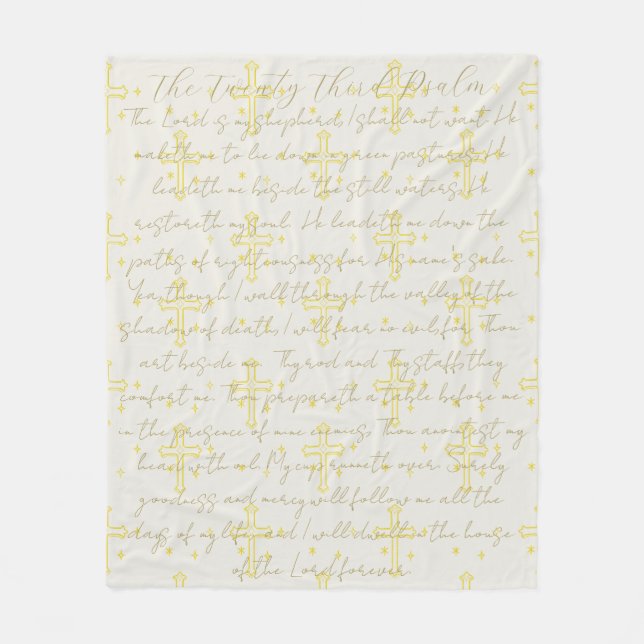 The Twenty Third Psalm
The Lord is my shepherd, I shall not want. He
maketh me to lie down in green pastures. He
leadeth me beside the still waters. He
restoreth my soul. He leadeth me down the
paths of righteousness for His name's sake.
Yea, though I walk through the valley of the
shadow of death, I will fear no evil, for Thou
art beside me. Thy rod and Thy staff, they
comfort me. Thou prepareth a table before me
in the presence of mine enemies. Thou anointest my
head with oil. My cup runneth over. Surely
goodness and mercy will follow me all the
days of my life, and I will dwell in the house
of the Lord forever.